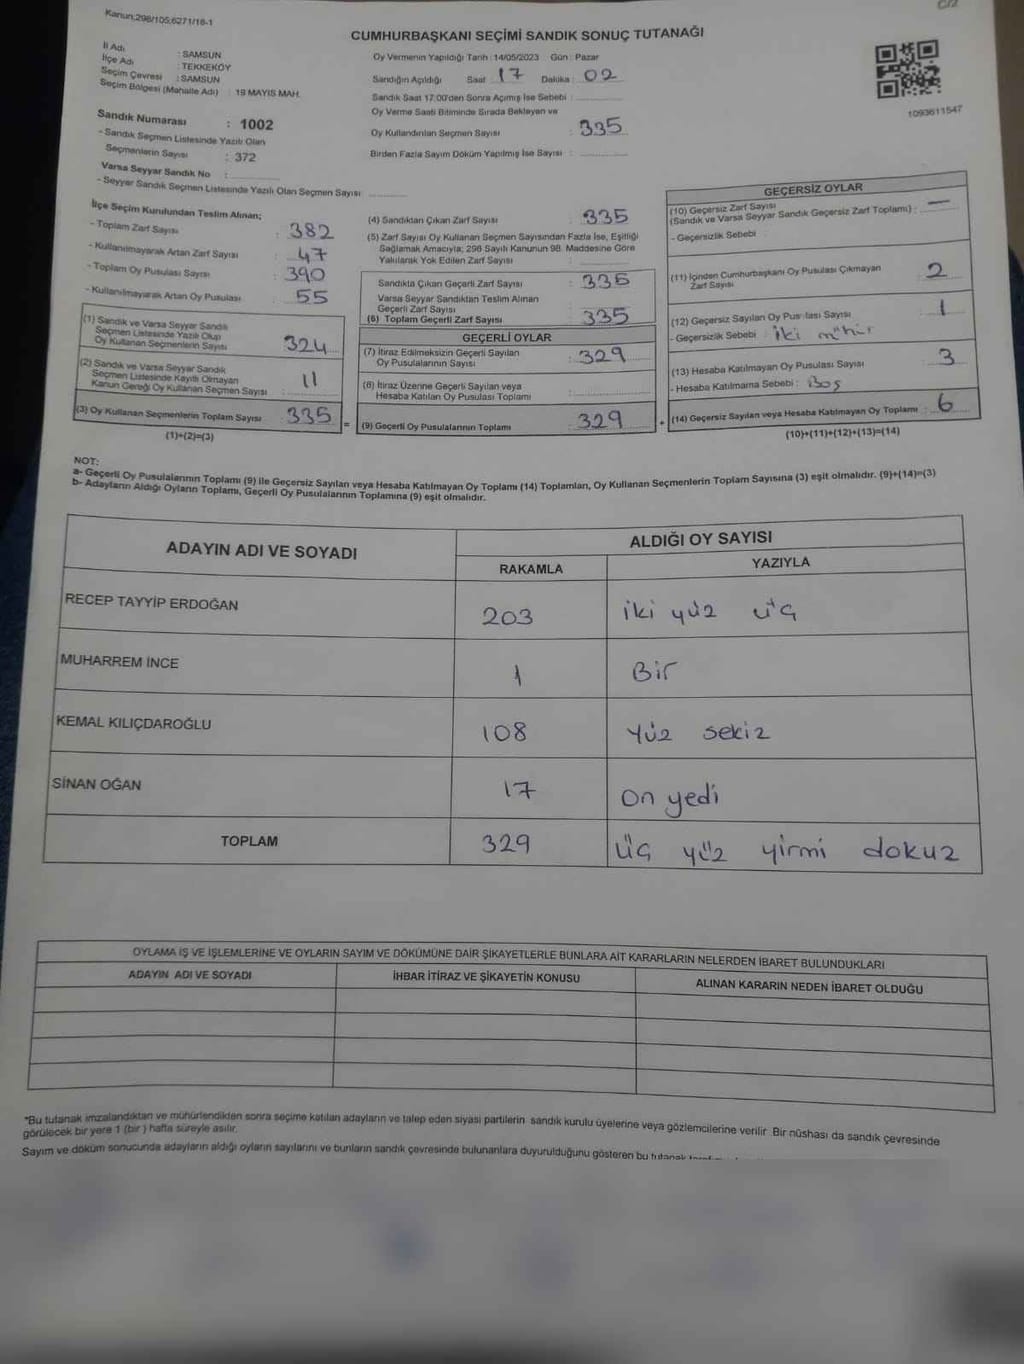 Kanun:298/105;6271/18-1
CUMHURBAŞKANI SEÇİMİ SANDIK SONUÇ TUTANAĞI
İl Adı : SAMSUN
İlçe Adı : TEKKEKÖY
Seçim Çevresi : SAMSUN
Seçim Bölgesi (Mahalle Adı) : 19 MAYIS MAH.
Sandık Numarası : 1002
- Sandık Seçmen Listesinde Yazılı Olan
Seçmenlerin Sayısı : 372
Varsa Seyyar Sandık No :
- Seyyar Sandık Seçmen Listesinde Yazılı Olan Seçmen Sayısı
Oy Vermenin Yapıldığı Tarih : 14/05/2023 Gün : Pazar
Sandığın Açıldığı Saat : 17 Dakika : 02
Sandık Saat 17:00'den Sonra Açımış İse Sebebi :
Oy Verme Saati Bitiminde Sırada Bekleyen ve
Oy Kullandırılan Seçmen Sayısı : 335
Birden Fazla Sayım Döküm Yapılmış İse Sayısı :
1093611547
İlçe Seçim Kurulundan Teslim Alınan;
- Toplam Zarf Sayısı : 382
- Kullanılmayarak Artan Zarf Sayısı : 47
- Toplam Oy Pusulası Sayısı : 390
- Kullanılmayarak Artan Oy Pusulası : 55
(1) Sandık ve Varsa Seyyar Sandık
Seçmen Listesinde Yazılı Olup
Oy Kullanan Seçmenlerin Sayısı : 324
(2) Sandık ve Varsa Seyyar Sandık
Seçmen Listesinde Kayıtlı Olmayan
Kanun Gereği Oy Kullanan Seçmen Sayısı : 11
(3) Oy Kullanan Seçmenlerin Toplam Sayısı : 335
(1)+(2)=(3)
(4) Sandıktan Çıkan Zarf Sayısı : 335
(5) Zarf Sayısı Oy Kullanan Seçmen Sayısından Fazla İse, Eşitliği
Sağlamak Amacıyla; 298 Sayılı Kanunun 98. Maddesine Göre
Yakılarak Yok Edilen Zarf Sayısı :
Sandıkta Çıkan Geçerli Zarf Sayısı : 335
Varsa Seyyar Sandıktan Teslim Alınan
Geçerli Zarf Sayısı :
(6) Toplam Geçerli Zarf Sayısı : 335
GEÇERLİ OYLAR
(7) İtiraz Edilmeksizin Geçerli Sayılan
Oy Pusulalarının Sayısı : 329
(8) İtiraz Üzerine Geçerli Sayılan veya
Hesaba Katılan Oy Pusulası Toplamı :
(9) Geçerli Oy Pusulalarının Toplamı : 329
GEÇERSİZ OYLAR
(10) Geçersiz Zarf Sayısı
(Sandık ve Varsa Seyyar Sandık Geçersiz Zarf Toplamı) : —
- Geçersizlik Sebebi :
(11) İçinden Cumhurbaşkanı Oy Pusulası Çıkmayan
Zarf Sayısı : 2
(12) Geçersiz Sayılan Oy Pusulası Sayısı : 1
- Geçersizlik Sebebi : iki mühür
(13) Hesaba Katılmayan Oy Pusulası Sayısı : 3
- Hesaba Katılmama Sebebi : Boş
(14) Geçersiz Sayılan veya Hesaba Katılmayan Oy Toplamı : 6
(10)+(11)+(12)+(13)=(14)
NOT:
a- Geçerli Oy Pusulalarının Toplamı (9) ile Geçersiz Sayılan veya Hesaba Katılmayan Oy Toplamı (14) Toplamları, Oy Kullanan Seçmenlerin Toplam Sayısına (3) eşit olmalıdır. (9)+(14)=(3)
b- Adayların Aldığı Oyların Toplamı, Geçerli Oy Pusulalarının Toplamına (9) eşit olmalıdır.
ADAYIN ADI VE SOYADI
ALDIĞI OY SAYISI
RAKAMLA YAZIYLA
RECEP TAYYİP ERDOĞAN 203 iki yüz üç
MUHARREM İNCE 1 Bir
KEMAL KILIÇDAROĞLU 108 Yüz sekiz
SİNAN OĞAN 17 On yedi
TOPLAM 329 üç yüz yirmi dokuz
OYLAMA İŞ VE İŞLEMLERİNE VE OYLARIN SAYIM VE DÖKÜMÜNE DAİR ŞİKAYETLERLE BUNLARA AİT KARARLARIN NELERDEN İBARET BULUNDUKLARI
ADAYIN ADI VE SOYADI İHBAR İTİRAZ VE ŞİKAYETİN KONUSU ALINAN KARARIN NEDEN İBARET OLDUĞU
*Bu tutanak imzalandıktan ve mühürlendikten sonra seçime katılan adayların ve talep eden siyasi partilerin sandık kurulu üyelerine veya gözlemcilerine verilir. Bir nüshası da sandık çevresinde
görülecek bir yere 1 (bir) hafta süreyle asılır.
Sayım ve döküm sonucunda adayların aldığı oyların sayılarını ve bunların sandık çevresinde bulunanlara duyurulduğunu gösteren bu tutanak